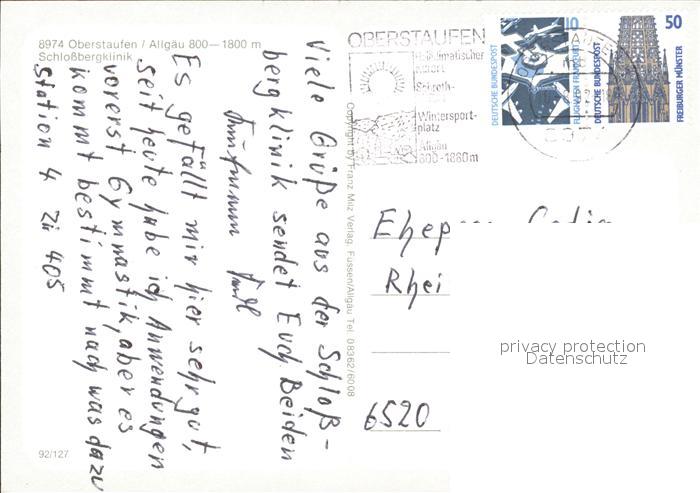 8974 Oberstaufen / Allgäu 800–1800 m
Schloßbergklinik
Viele Grüße aus der Schloß-
bergklinik sendet Euch Beiden
Es gefällt mir hier sehr gut,
seit heute habe ich Anwendungen
vorerst Gymnastik, aber es
kommt bestimmt noch was dazu
Station 4 Zi 405
92/127
Copyright by Franz Milz Verlag, Füssen/Allgäu Tel. 08362/6008
OBERSTAUFEN
heilklimatischer
Kurort
Schroth-
Wintersport-
platz
Allgäu
800-1860m
10
DEUTSCHE BUNDESPOST
FLUGHAFEN FRANKFURT
50
DEUTSCHE BUNDESPOST
FREIBURGER MÜNSTER
8974
Ehep
Rhei
6520
privacy protection
Datenschutz